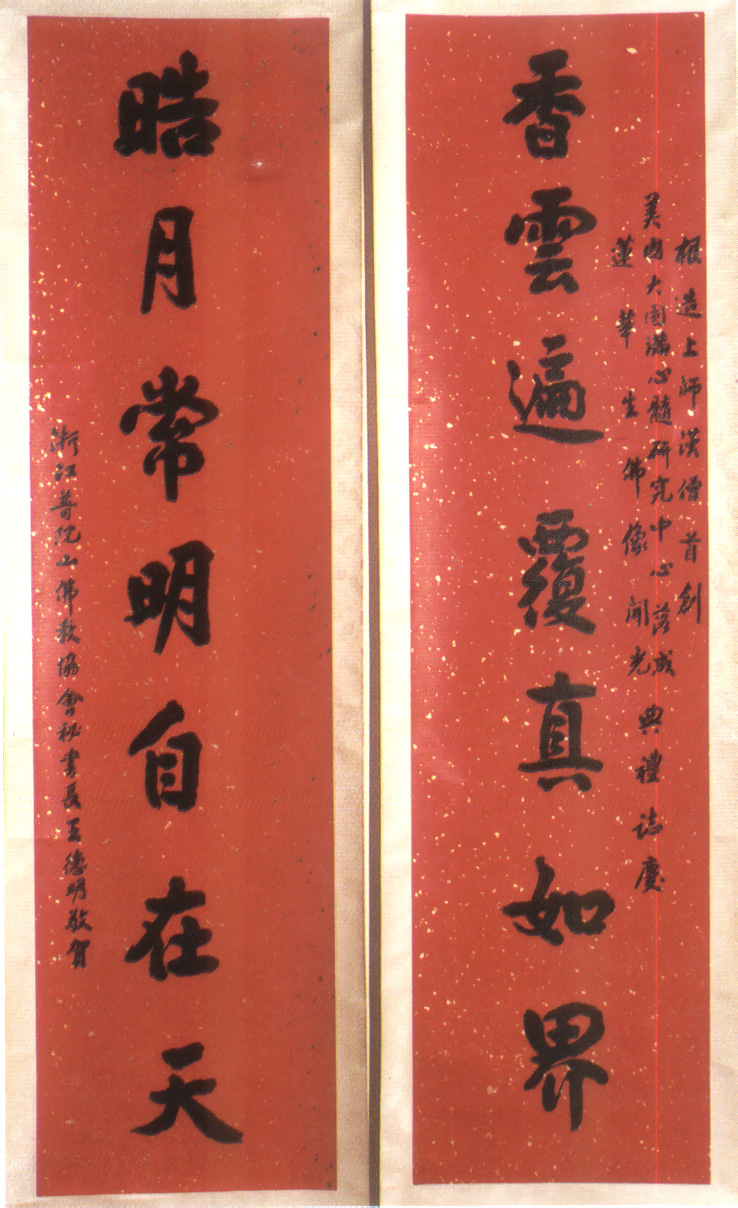 根造上師漢僧首創
美國大圓滿心髓研究中心落成
蓮華生佛像開光
典禮誌慶
香雲遍覆真如界
晧月常明自在天
浙江普陀山佛教協會秘書長王德明敬賀